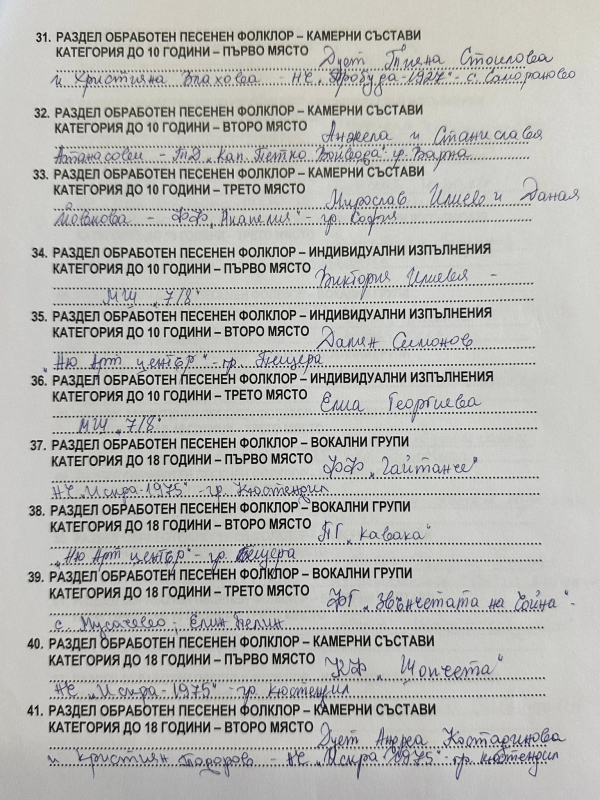 31. РАЗДЕЛ ОБРАБОТЕН ПЕСЕНЕН ФОЛКЛОР – КАМЕРНИ СЪСТАВИ
КАТЕГОРИЯ ДО 10 ГОДИНИ – ПЪРВО МЯСТО Дует Тияна Стоилова
и Християна Влахова - НЧ „Пробуда-1927" - с. Самораново
32. РАЗДЕЛ ОБРАБОТЕН ПЕСЕНЕН ФОЛКЛОР – КАМЕРНИ СЪСТАВИ
КАТЕГОРИЯ ДО 10 ГОДИНИ – ВТОРО МЯСТО Анджела и Станислава
Атанасови - ТД „Кап. Петко Войвода" гр. Варна
33. РАЗДЕЛ ОБРАБОТЕН ПЕСЕНЕН ФОЛКЛОР – КАМЕРНИ СЪСТАВИ
КАТЕГОРИЯ ДО 10 ГОДИНИ – ТРЕТО МЯСТО Мирослав Илиев и Даная
Йовкова - ФФ „Анапелия" - гр. София
34. РАЗДЕЛ ОБРАБОТЕН ПЕСЕНЕН ФОЛКЛОР – ИНДИВИДУАЛНИ ИЗПЪЛНЕНИЯ
КАТЕГОРИЯ ДО 10 ГОДИНИ – ПЪРВО МЯСТО Виктория Илиева -
МЩ „7/8"
35. РАЗДЕЛ ОБРАБОТЕН ПЕСЕНЕН ФОЛКЛОР – ИНДИВИДУАЛНИ ИЗПЪЛНЕНИЯ
КАТЕГОРИЯ ДО 10 ГОДИНИ – ВТОРО МЯСТО Дамян Симонов
„Ню Арт център" - гр. Пещера
36. РАЗДЕЛ ОБРАБОТЕН ПЕСЕНЕН ФОЛКЛОР – ИНДИВИДУАЛНИ ИЗПЪЛНЕНИЯ
КАТЕГОРИЯ ДО 10 ГОДИНИ – ТРЕТО МЯСТО Елиа Георгиева
МЩ „7/8"
37. РАЗДЕЛ ОБРАБОТЕН ПЕСЕНЕН ФОЛКЛОР – ВОКАЛНИ ГРУПИ
КАТЕГОРИЯ ДО 18 ГОДИНИ – ПЪРВО МЯСТО ФФ „Гайтанче"
НЧ „Искра-1975" - гр. Кюстендил
38. РАЗДЕЛ ОБРАБОТЕН ПЕСЕНЕН ФОЛКЛОР – ВОКАЛНИ ГРУПИ
КАТЕГОРИЯ ДО 18 ГОДИНИ – ВТОРО МЯСТО ПГ „Кавака"
„Ню Арт център" - гр. Пещера
39. РАЗДЕЛ ОБРАБОТЕН ПЕСЕНЕН ФОЛКЛОР – ВОКАЛНИ ГРУПИ
КАТЕГОРИЯ ДО 18 ГОДИНИ – ТРЕТО МЯСТО ФГ „Звънчетата на -
с. Мусачево, Елин Пелин
40. РАЗДЕЛ ОБРАБОТЕН ПЕСЕНЕН ФОЛКЛОР – КАМЕРНИ СЪСТАВИ
КАТЕГОРИЯ ДО 18 ГОДИНИ – ПЪРВО МЯСТО КФ „Шопчета"
НЧ „Искра-1975" - гр. Кюстендил
41. РАЗДЕЛ ОБРАБОТЕН ПЕСЕНЕН ФОЛКЛОР – КАМЕРНИ СЪСТАВИ
КАТЕГОРИЯ ДО 18 ГОДИНИ – ВТОРО МЯСТО Дует Андреа Костадинова
и Кристиян Тодоров - НЧ „Искра-1975" - гр. Кюстендил